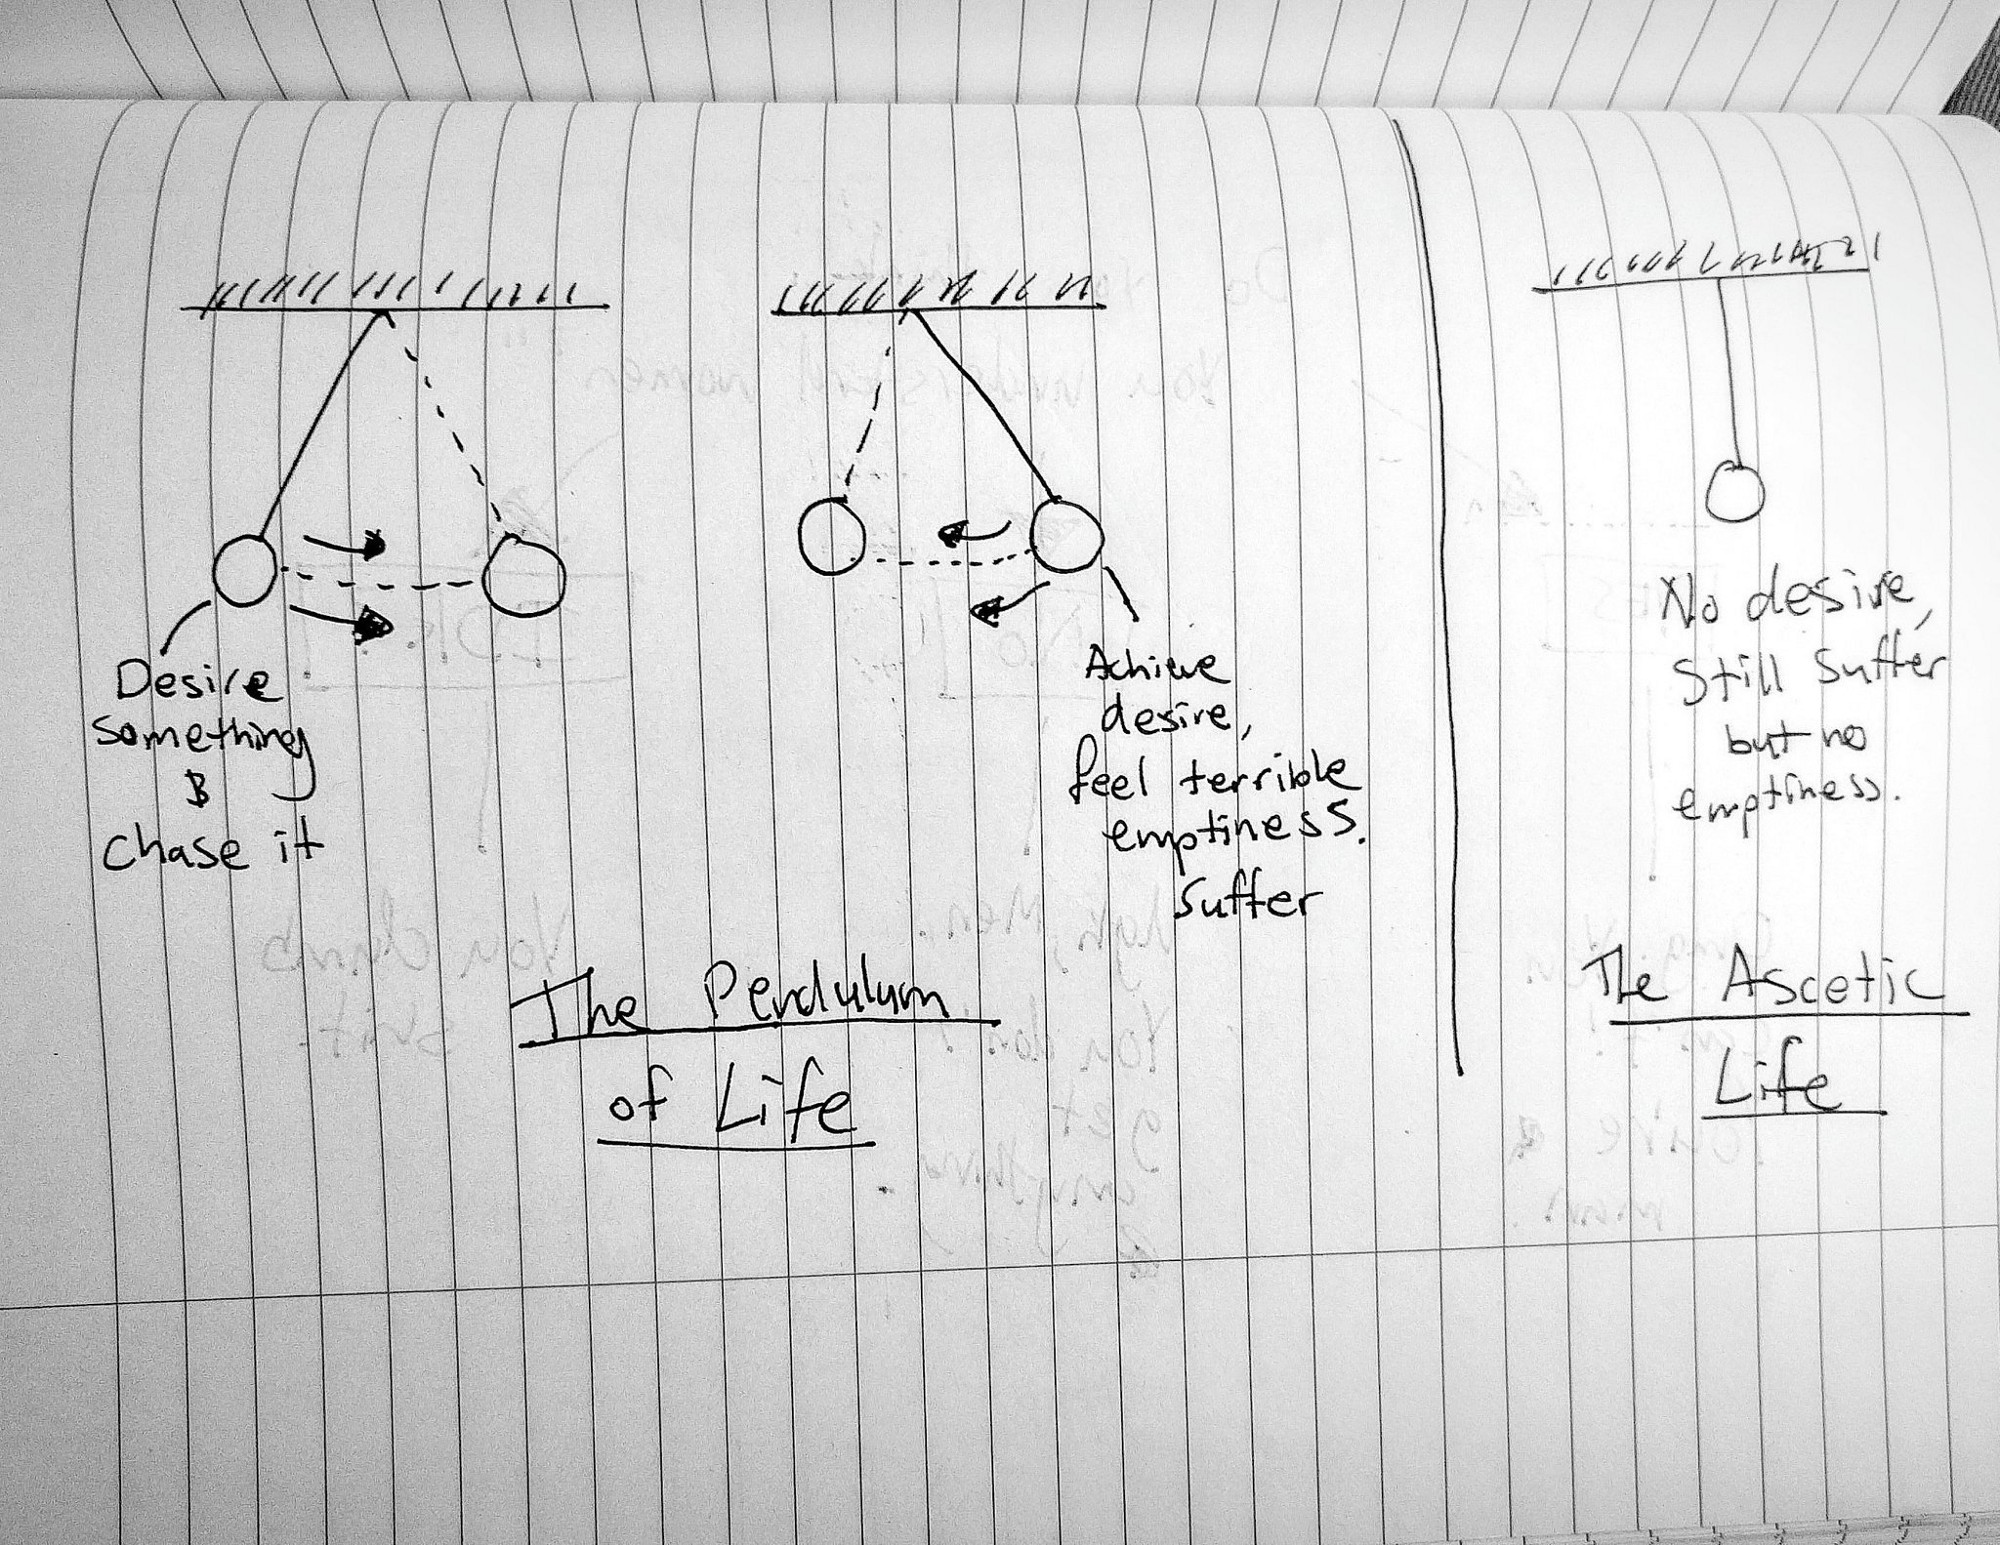 Desire
something
&
chase it
Achieve
desire,
feel terrible
emptiness.
Suffer
The Pendulum
of Life
No desire,
Still Suffer
but no
emptiness.
The Ascetic
Life